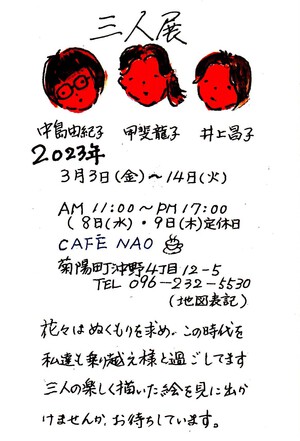 三人展
中島由紀子 甲斐龍子 井上昌子
2023年
3月3日(金)~14日(火)
AM 11:00~PM 17:00
(8日(水)・9日(木)定休日
CAFÉ NAO
菊陽町沖野4丁目12-5
TEL 096-232-5530
(地図表記)
花々はぬくもりを求め、この時代を
私達も乗り越え様と過ごしてます
三人の楽しく描いた絵を見に出か
けませんか、お待ちしています。